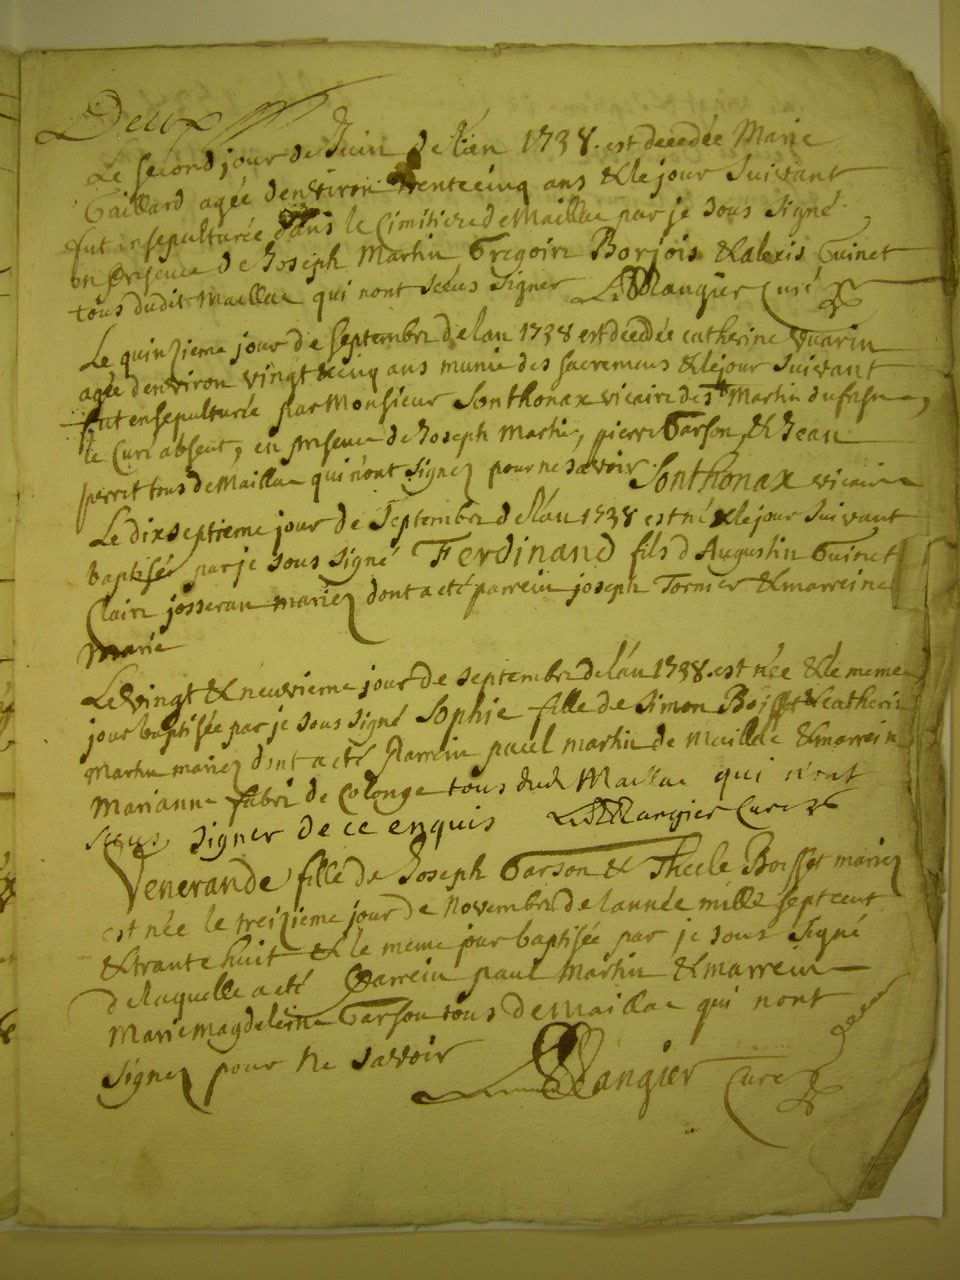 Deux
Le second jour de Juin de l'an 1738. est decedée Marie
Gaillard agée denviron trentecinq ans & le jour suivant
fut ensepulturée dans le Cimitiere de Maillac par je sous signé
en presence de Joseph Martin Gregoire Borjois & alexis Guinet
tous dudit Maillac qui nont sceus signer Mangier Curé
Le quinzieme jour de septembre de lan 1738 est decedée catherine vuarin
agée denviron vingt & cinq ans munie des sacremens & le jour suivant
fut ensepulturée par Monsieur Sonthonax vicaire de st Martin dufresne,
le Curé absent, en presence de Joseph Martin, pierre Garson, & Jean
perret tous de Maillac qui n'ont signez pour ne savoir. Sonthonax vicaire
Le dixseptieme jour de Septembre de l'an 1738 est né & le jour suivant
baptisée par je sous signé Ferdinand fils d Augustin Guinet
Claire josseran mariez dont a eté parrein joseph Tornier & marreine
Marie
Le vingt & neuvieme jour de septembre de l'an 1738. est née & le meme
jour baptisée par je sous signé Sophie fille de Simon Boisset & catheri
Martin mariez dont a eté Parrein paul martin de Maillac & marrein
Marianne fabri de Colonge tous dud Maillac qui n'ont
sceus signer de ce enquis Mangier Curé
Venerande fille de Joseph Garson & Thecle Boisset mariez
est née le treizieme jour de Novembre de lannée mille sept cent
& trante huit & le meme jour baptisée par je sous signé
de laquelle a eté Parrein paul Martin & marrein
Marie Magdeleine Garson tous de Maillac qui nont
signez pour ne savoir Mangier Curé